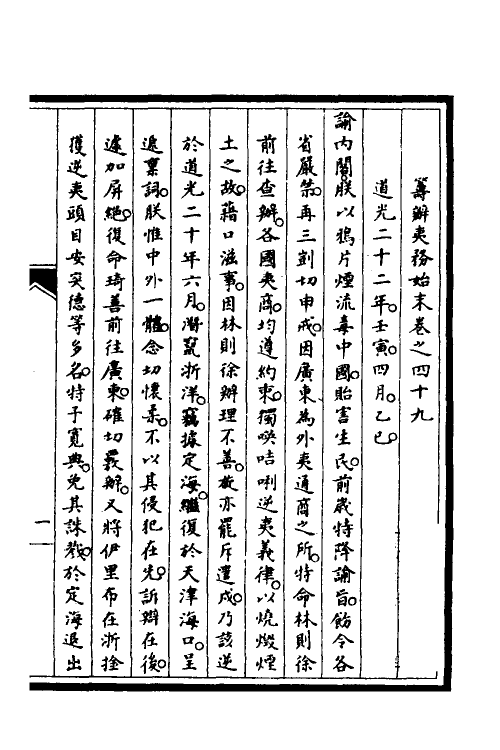 籌辦夷務始末卷之四十九
道光二十二年。壬寅。四月。乙巳。
諭內閣。朕以鴉片煙流毒中國。貽害生民。前歲特降諭旨。飭令各
省嚴禁。再三剴切申戒。因廣東為外夷通商之所。特命林則徐
前往查辦。各國夷商。均遵約束。獨𠸄咭唎逆夷義律。以燒燬煙
土之故。藉口滋事。因林則徐辦理不善。故亦罷斥遣戍。乃該逆
於道光二十年六月。潛竄浙洋。竊據定海。繼復於天津海口。呈
遞稟詞。朕惟中外一體。念切懷柔。不以其侵犯在先。訴辯在後。
遽加屏絕。復命琦善前往廣東。確切覈辦。又將伊里布在浙拴
獲逆夷頭目安突德等多名。特予寬典。免其誅戮。於定海退出
一